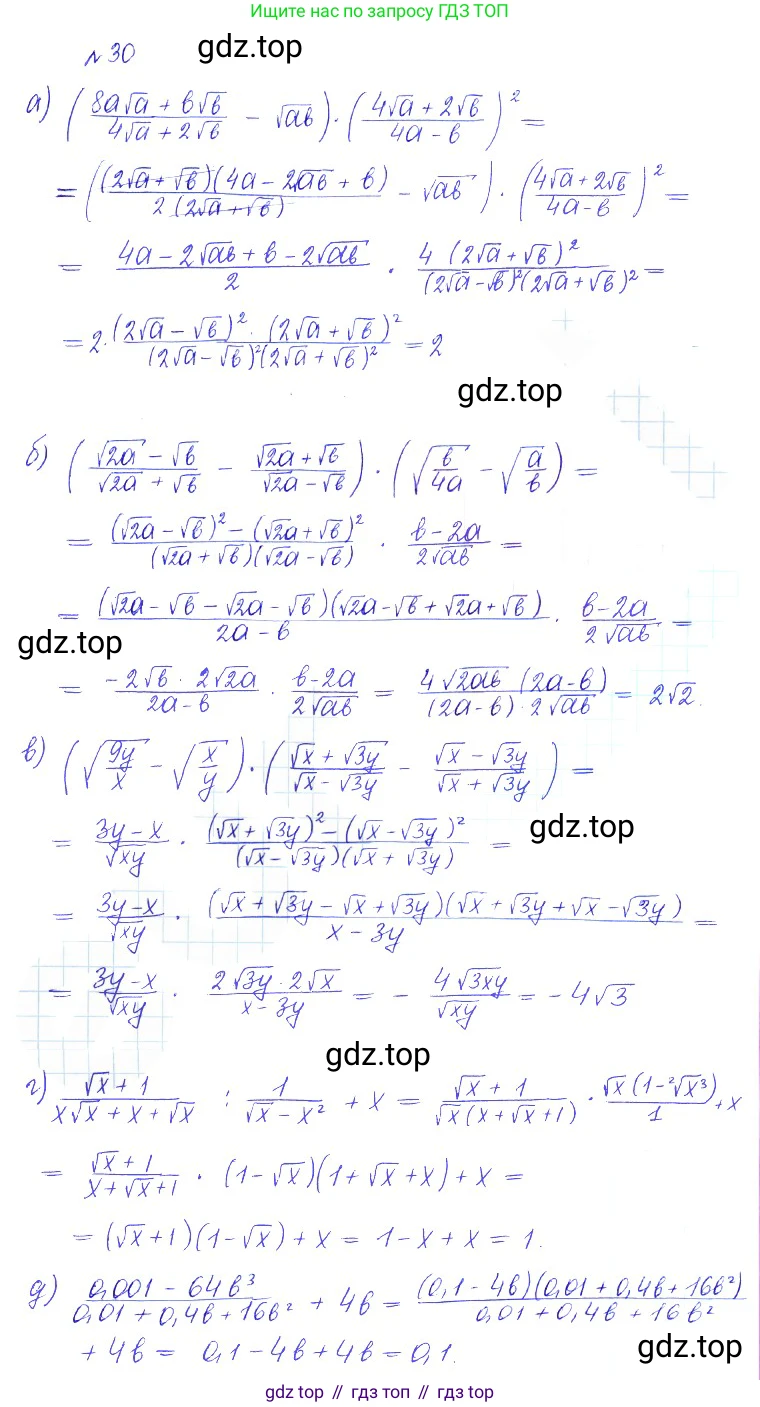 Ищите нас по запросу ГДЗ ТОП
№ 30
gdz.top
а) ( (8a√a + в√в)/(4√a + 2√в) − √aв ) · ( (4√a + 2√в)/(4a − в) )² =
= ( ((2√a + √в)(4a − 2√aв + в))/(2(2√a + √в)) − √aв ) · ( (4√a + 2√в)/(4a − в) )² =
= (4a − 2√aв + в − 2√aв)/2 · (4(2√a + √в)²)/((2√a − √в)²(2√a + √в)²) =
= 2 · ((2√a − √в)² · (2√a + √в)²)/((2√a − √в)²(2√a + √в)²) = 2
gdz.top
б) ( (√2a − √в)/(√2a + √в) − (√2a + √в)/(√2a − √в) ) · ( √(в/4a) − √(a/в) ) =
= ((√2a − √в)² − (√2a + √в)²)/((√2a + √в)(√2a − √в)) · (в − 2a)/(2√aв) =
= ((√2a − √в − √2a − √в)(√2a − √в + √2a + √в))/(2a − в) · (в − 2a)/(2√aв) =
gdz.top
= (−2√в · 2√2a)/(2a − в) · (в − 2a)/(2√aв) = (4√2aв (2a − в))/((2a − в) · 2√aв) = 2√2.
в) ( √(9y/x) − √(x/y) ) · ( (√x + √3y)/(√x − √3y) − (√x − √3y)/(√x + √3y) ) =
= (3y − x)/√xy · ((√x + √3y)² − (√x − √3y)²)/((√x − √3y)(√x + √3y)) =
gdz.top
= (3y − x)/√xy · ((√x + √3y − √x + √3y)(√x + √3y + √x − √3y))/(x − 3y) =
= (3y − x)/√xy · (2√3y · 2√x)/(x − 3y) = − (4√3xy)/√xy = −4√3
gdz.top
г) (√x + 1)/(x√x + x + √x) : 1/(√x − x²) + x = (√x + 1)/(√x(x + √x + 1)) · (√x(1 − ²√x³))/1 + x
= (√x + 1)/(x + √x + 1) · (1 − √x)(1 + √x + x) + x =
= (√x + 1)(1 − √x) + x = 1 − x + x = 1.
д) (0,001 − 64в³)/(0,01 + 0,4в + 16в²) + 4в = ((0,1 − 4в)(0,01 + 0,4в + 16в²))/(0,01 + 0,4в + 16в²)
+ 4в = 0,1 − 4в + 4в = 0,1.
gdz.top
gdz top // гдз топ // gdz top